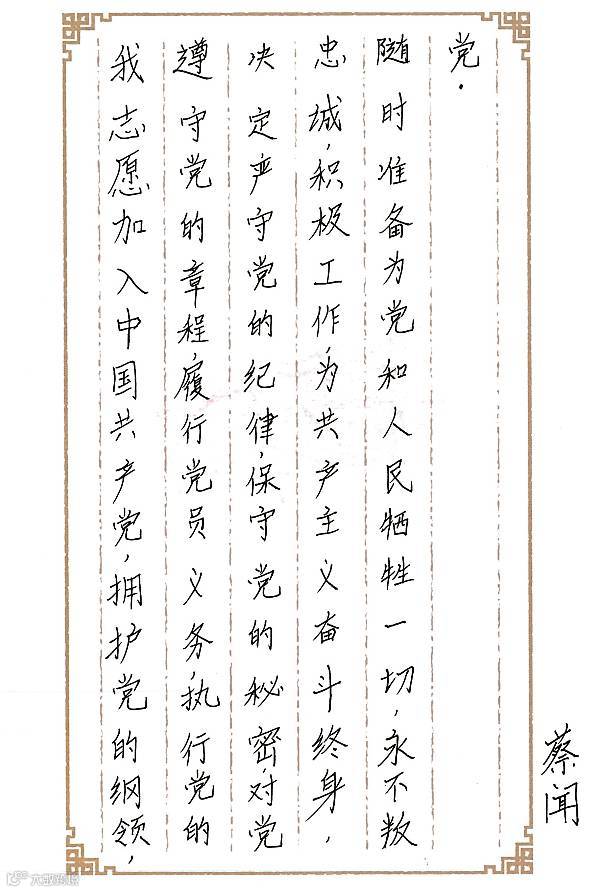 我志愿加入中国共产党,拥护党的纲领,
遵守党的章程,履行党员义务,执行党的
决定,严守党的纪律,保守党的秘密,对党
忠诚,积极工作,为共产主义奋斗终身,
随时准备为党和人民牺牲一切,永不叛
党.
蔡闻